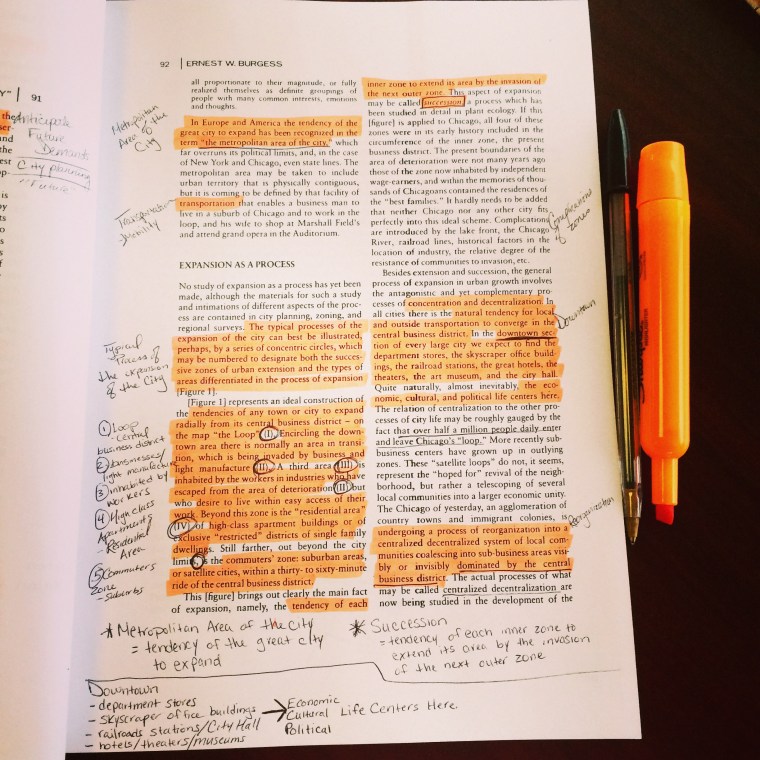 92 | ERNEST W. BURGESS
all proportionate to their magnitude, or fully
realized themselves as definite groupings of
people with many common interests, emotions
and thoughts.
In Europe and America the tendency of the
great city to expand has been recognized in the
term "the metropolitan area of the city," which
far overruns its political limits, and, in the case
of New York and Chicago, even state lines. The
metropolitan area may be taken to include
urban territory that is physically contiguous,
but it is coming to be defined by that facility of
transportation that enables a business man to
live in a suburb of Chicago and to work in the
loop, and his wife to shop at Marshall Field's
and attend grand opera in the Auditorium.
EXPANSION AS A PROCESS
No study of expansion as a process has yet been
made, although the materials for such a study
and intimations of different aspects of the proc-
ess are contained in city planning, zoning, and
regional surveys. The typical processes of the
expansion of the city can best be illustrated,
perhaps, by a series of concentric circles, which
may be numbered to designate both the succes-
sive zones of urban extension and the types of
areas differentiated in the process of expansion
[Figure 1].
[Figure 1] represents an ideal construction of
the tendencies of any town or city to expand
radially from its central business district – on
the map "the Loop" (I). Encircling the down-
town area there is normally an area in transi-
tion, which is being invaded by business and
light manufacture (II). A third area (III) is
inhabited by the workers in industries who have
escaped from the area of deterioration (II) but
who desire to live within easy access of their
work. Beyond this zone is the "residential area"
(IV) of high-class apartment buildings or of
exclusive "restricted" districts of single family
dwellings. Still farther, out beyond the city
limits is the commuters' zone: suburban areas,
or satellite cities, within a thirty- to sixty-minute
ride of the central business district.
This [figure] brings out clearly the main fact
of expansion, namely, the tendency of each
inner zone to extend its area by the invasion of
the next outer zone. This aspect of expansion
may be called succession, a process which has
been studied in detail in plant ecology. If this
[figure] is applied to Chicago, all four of these
zones were in its early history included in the
circumference of the inner zone, the present
business district. The present boundaries of the
area of deterioration were not many years ago
those of the zone now inhabited by independent
wage-earners, and within the memories of thou-
sands of Chicagoans contained the residences of
the "best families." It hardly needs to be added
that neither Chicago nor any other city fits
perfectly into this ideal scheme. Complications
are introduced by the lake front, the Chicago
River, railroad lines, historical factors in the
location of industry, the relative degree of the
resistance of communities to invasion, etc.
Besides extension and succession, the general
process of expansion in urban growth involves
the antagonistic and yet complementary pro-
cesses of concentration and decentralization. In
all cities there is the natural tendency for local
and outside transportation to converge in the
central business district. In the downtown sec-
tion of every large city we expect to find the
department stores, the skyscraper office build-
ings, the railroad stations, the great hotels, the
theaters, the art museum, and the city hall.
Quite naturally, almost inevitably, the eco-
nomic, cultural, and political life centers here.
The relation of centralization to the other pro-
cesses of city life may be roughly gauged by the
fact that over half a million people daily enter
and leave Chicago's "loop." More recently sub-
business centers have grown up in outlying
zones. These "satellite loops" do not, it seems,
represent the "hoped for" revival of the neigh-
borhood, but rather a telescoping of several
local communities into a larger economic unity.
The Chicago of yesterday, an agglomeration of
country towns and immigrant colonies, is
undergoing a process of reorganization into a
centralized decentralized system of local com-
munities coalescing into sub-business areas visi-
bly or invisibly dominated by the central
business district. The actual processes of what
may be called centralized decentralization are
now being studied in the development of the
Y" | 91
Anticipate
Future
Demands
City planning
Metropolitan
Area of the
City
Typical
Process of
the expansion
of the City
① Loop
- Central
business district
② businesses/
light manufacture
③ inhabited by
workers
④ High class
Apartments
Residential
Area
⑤ Commuters
Zone
- suburbs
Complications
of zones
Downtown
Reorganization
* Metropolitan Area of the City
= tendency of the great city
to expand
* Succession
= tendency of each inner zone to
extend its area by the invasion
of the next outer zone
Downtown
- department stores
- skyscraper office buildings
- railroads stations/City Hall
- hotels/theaters/museums
→ Economic
Cultural Life Centers Here.
Political